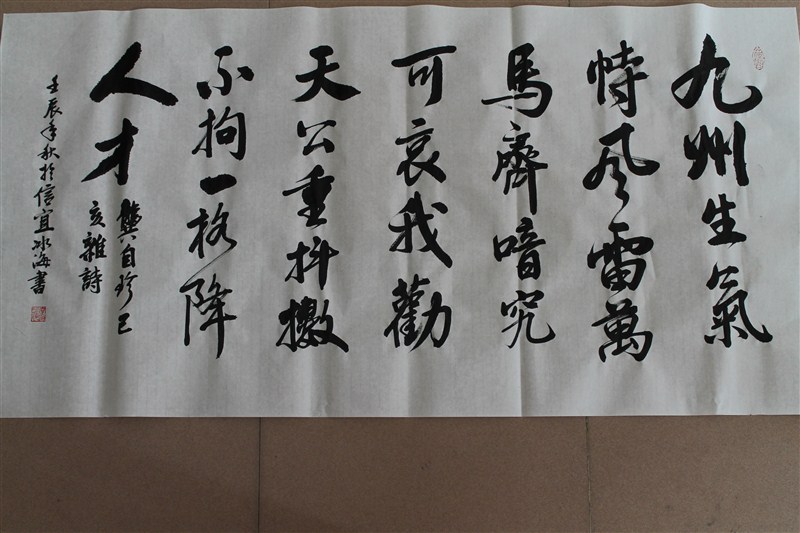 九州生氣
恃風雷萬
馬齊喑究
可哀我勸
天公重抖擻
不拘一格降
人才
龔自珍己
亥雜詩
壬辰年秋於信宜冰海書